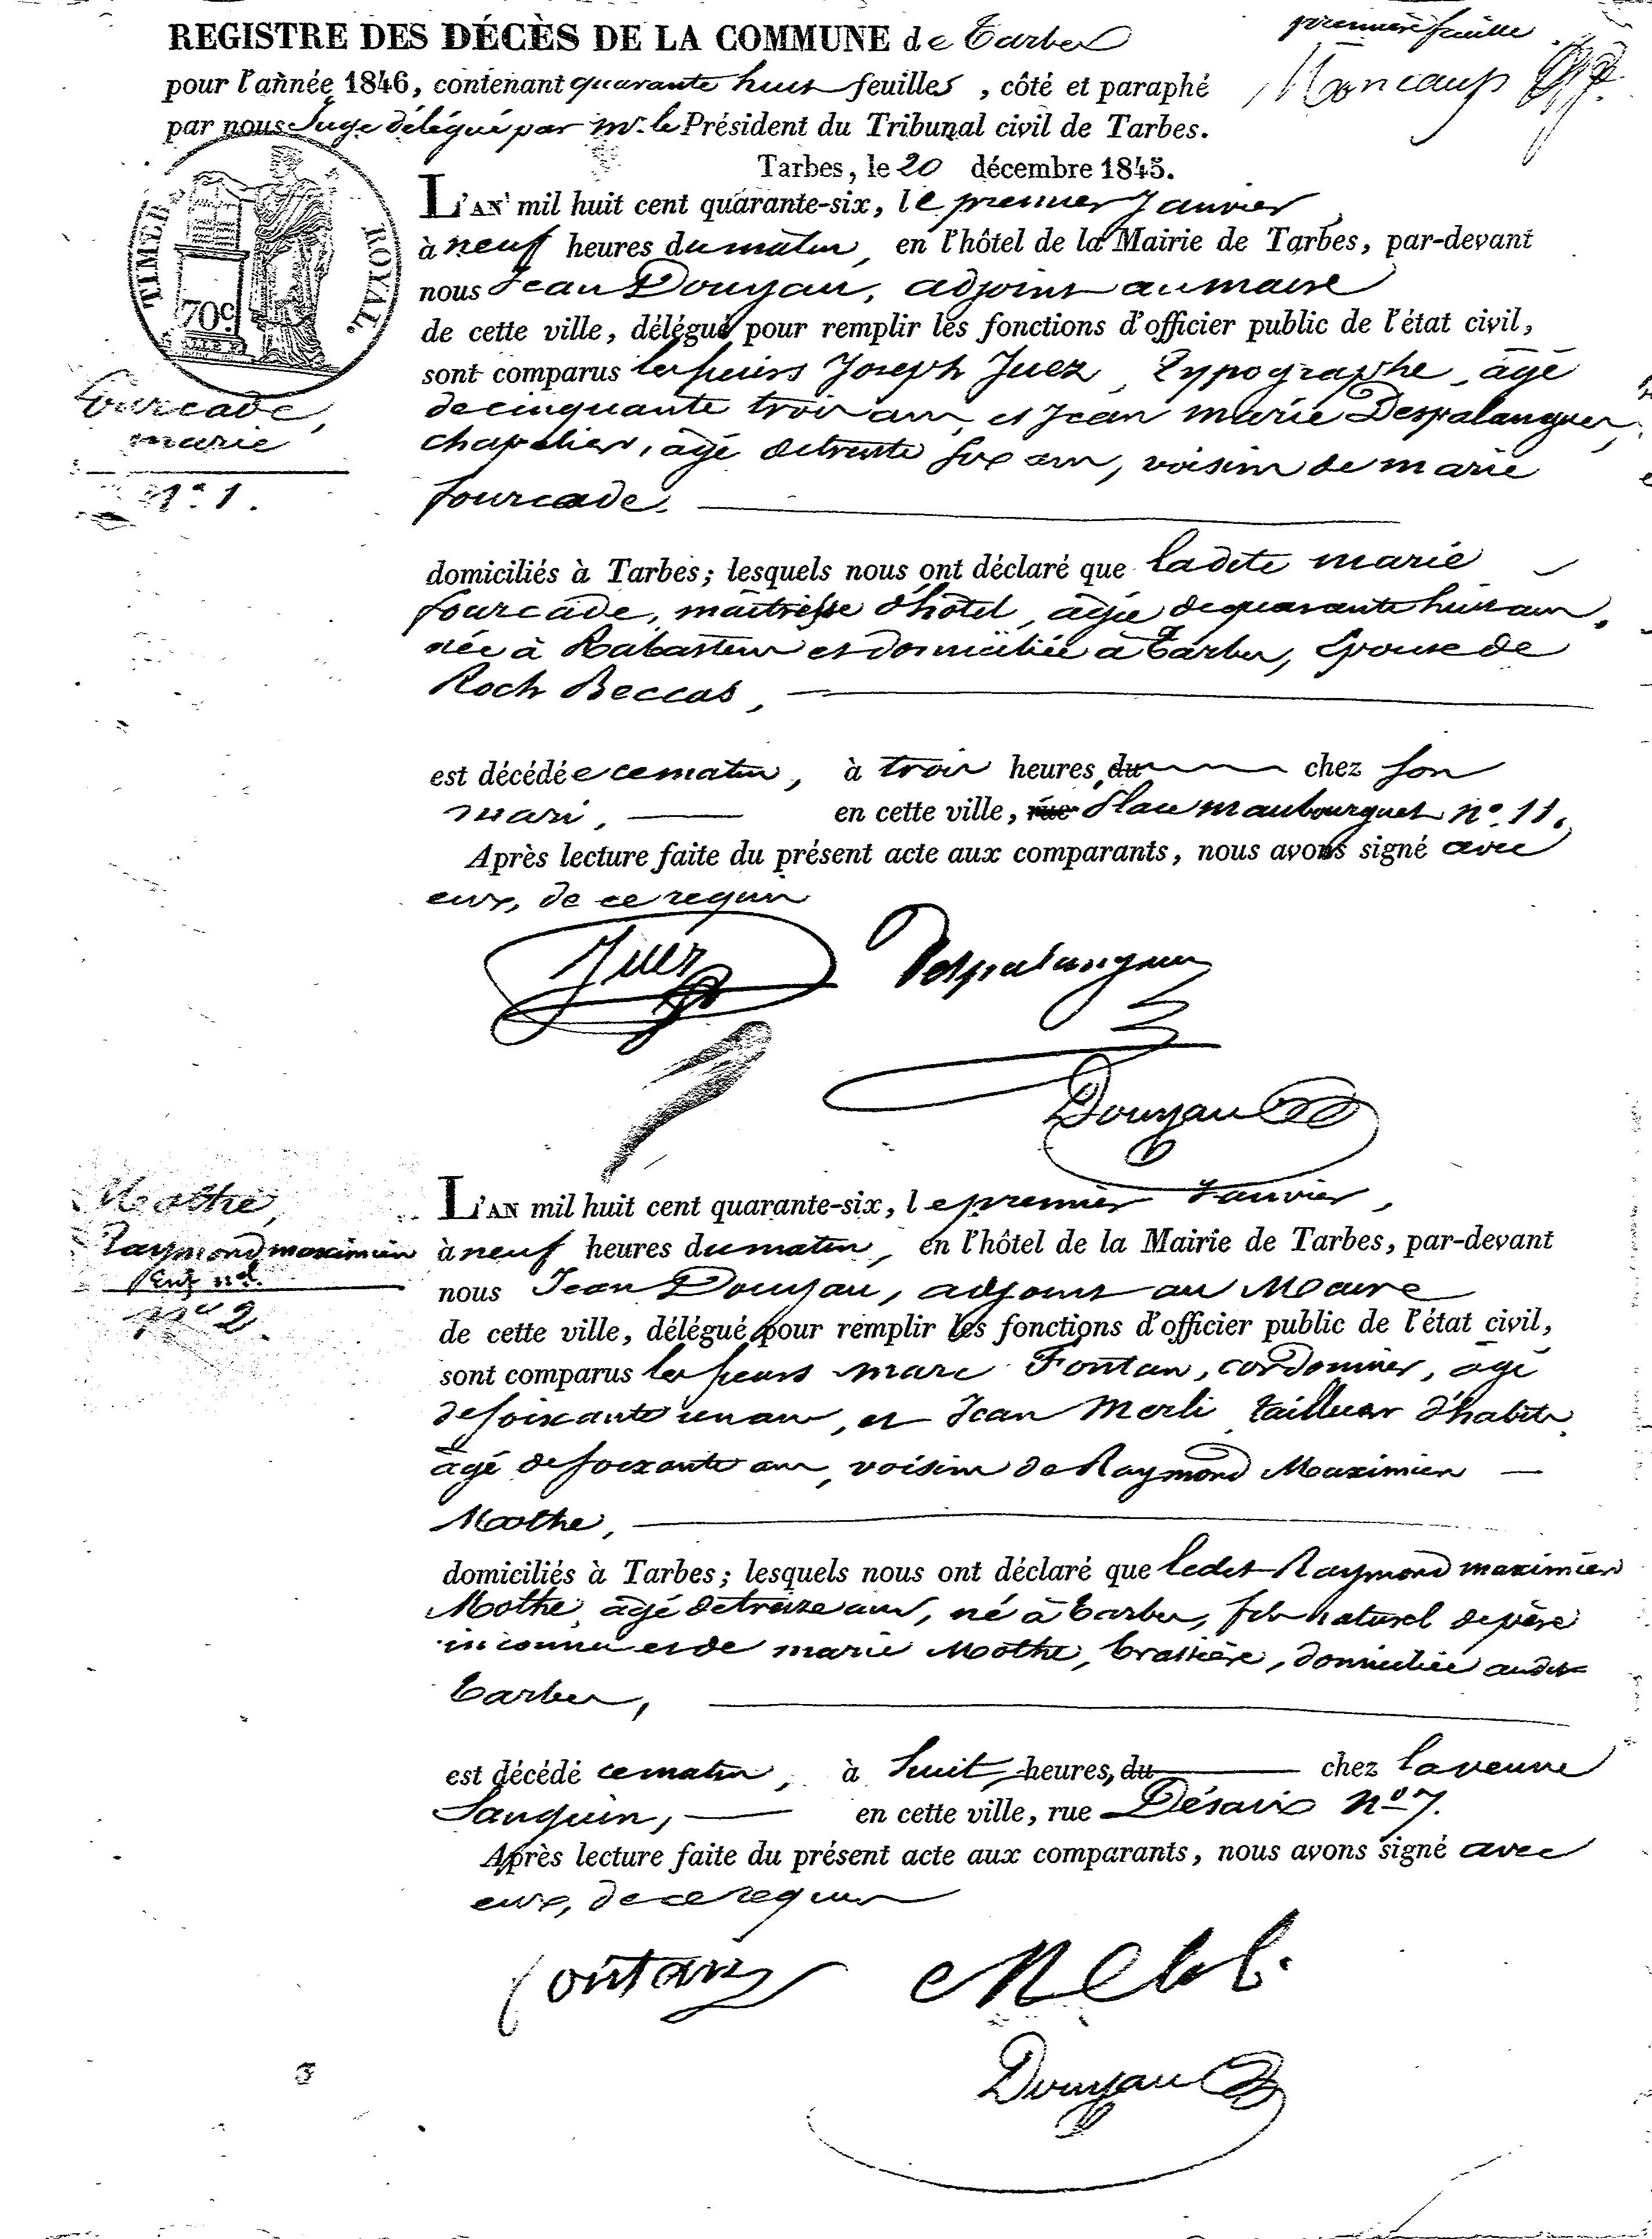 REGISTRE DES DÉCÈS DE LA COMMUNE de Tarbes
première feuille
pour l'année 1846, contenant quarante huit feuilles, côté et paraphé
par nous Juge délégué par Mr. le Président du Tribunal civil de Tarbes.
Tarbes, le 20 décembre 1845.
TIMBRE ROYAL.
70c
Fourcade,
marie
N°. 1.
L'AN mil huit cent quarante-six, le premier Janvier,
à neuf heures du matin, en l'hôtel de la Mairie de Tarbes, par-devant
nous Jean Douyau, adjoint au maire
de cette ville, délégué pour remplir les fonctions d'officier public de l'état civil,
sont comparus les sieurs Joseph Juez, Typographe, âgé
de cinquante trois ans, et Jean marie Despalangues,
chapelier, âgé de trente six ans, voisins de marie
fourcade,
domiciliés à Tarbes; lesquels nous ont déclaré que ladite marie
fourcade, maitresse d'hôtel, âgée de quarante huit ans,
née à Rabastens et domiciliée à Tarbes, épouse de
Roch Beccas,
est décédée ce matin, à trois heures, du chez son
mari, en cette ville, rue place maubourguet n°. 11.
Après lecture faite du présent acte aux comparants, nous avons signé avec
eux, de ce requis
Juez Despalangues
Douyau
Mothe,
Raymond maximien
Enf. nel.
N° 2
L'AN mil huit cent quarante-six, le premier Janvier,
à neuf heures du matin, en l'hôtel de la Mairie de Tarbes, par-devant
nous Jean Douyau, adjoint au Maire
de cette ville, délégué pour remplir les fonctions d'officier public de l'état civil,
sont comparus les sieurs marc Fontan, cordonnier, âgé
de soixante un ans, et Jean Merli, tailleur d'habits,
âgé de soixante ans, voisins de Raymond Maximien
Mothe,
domiciliés à Tarbes; lesquels nous ont déclaré que ledit Raymond maximien
Mothe, âgé de treize ans, né à Tarbes, fils naturel de père
inconnu et de marie Mothe, brassière, domiciliée audit
Tarbes,
est décédé ce matin, à huit heures, du chez la veuve
Sanguin, en cette ville, rue Désaix n° 7.
Après lecture faite du présent acte aux comparants, nous avons signé avec
eux, de ce requis
fontan
Douyau